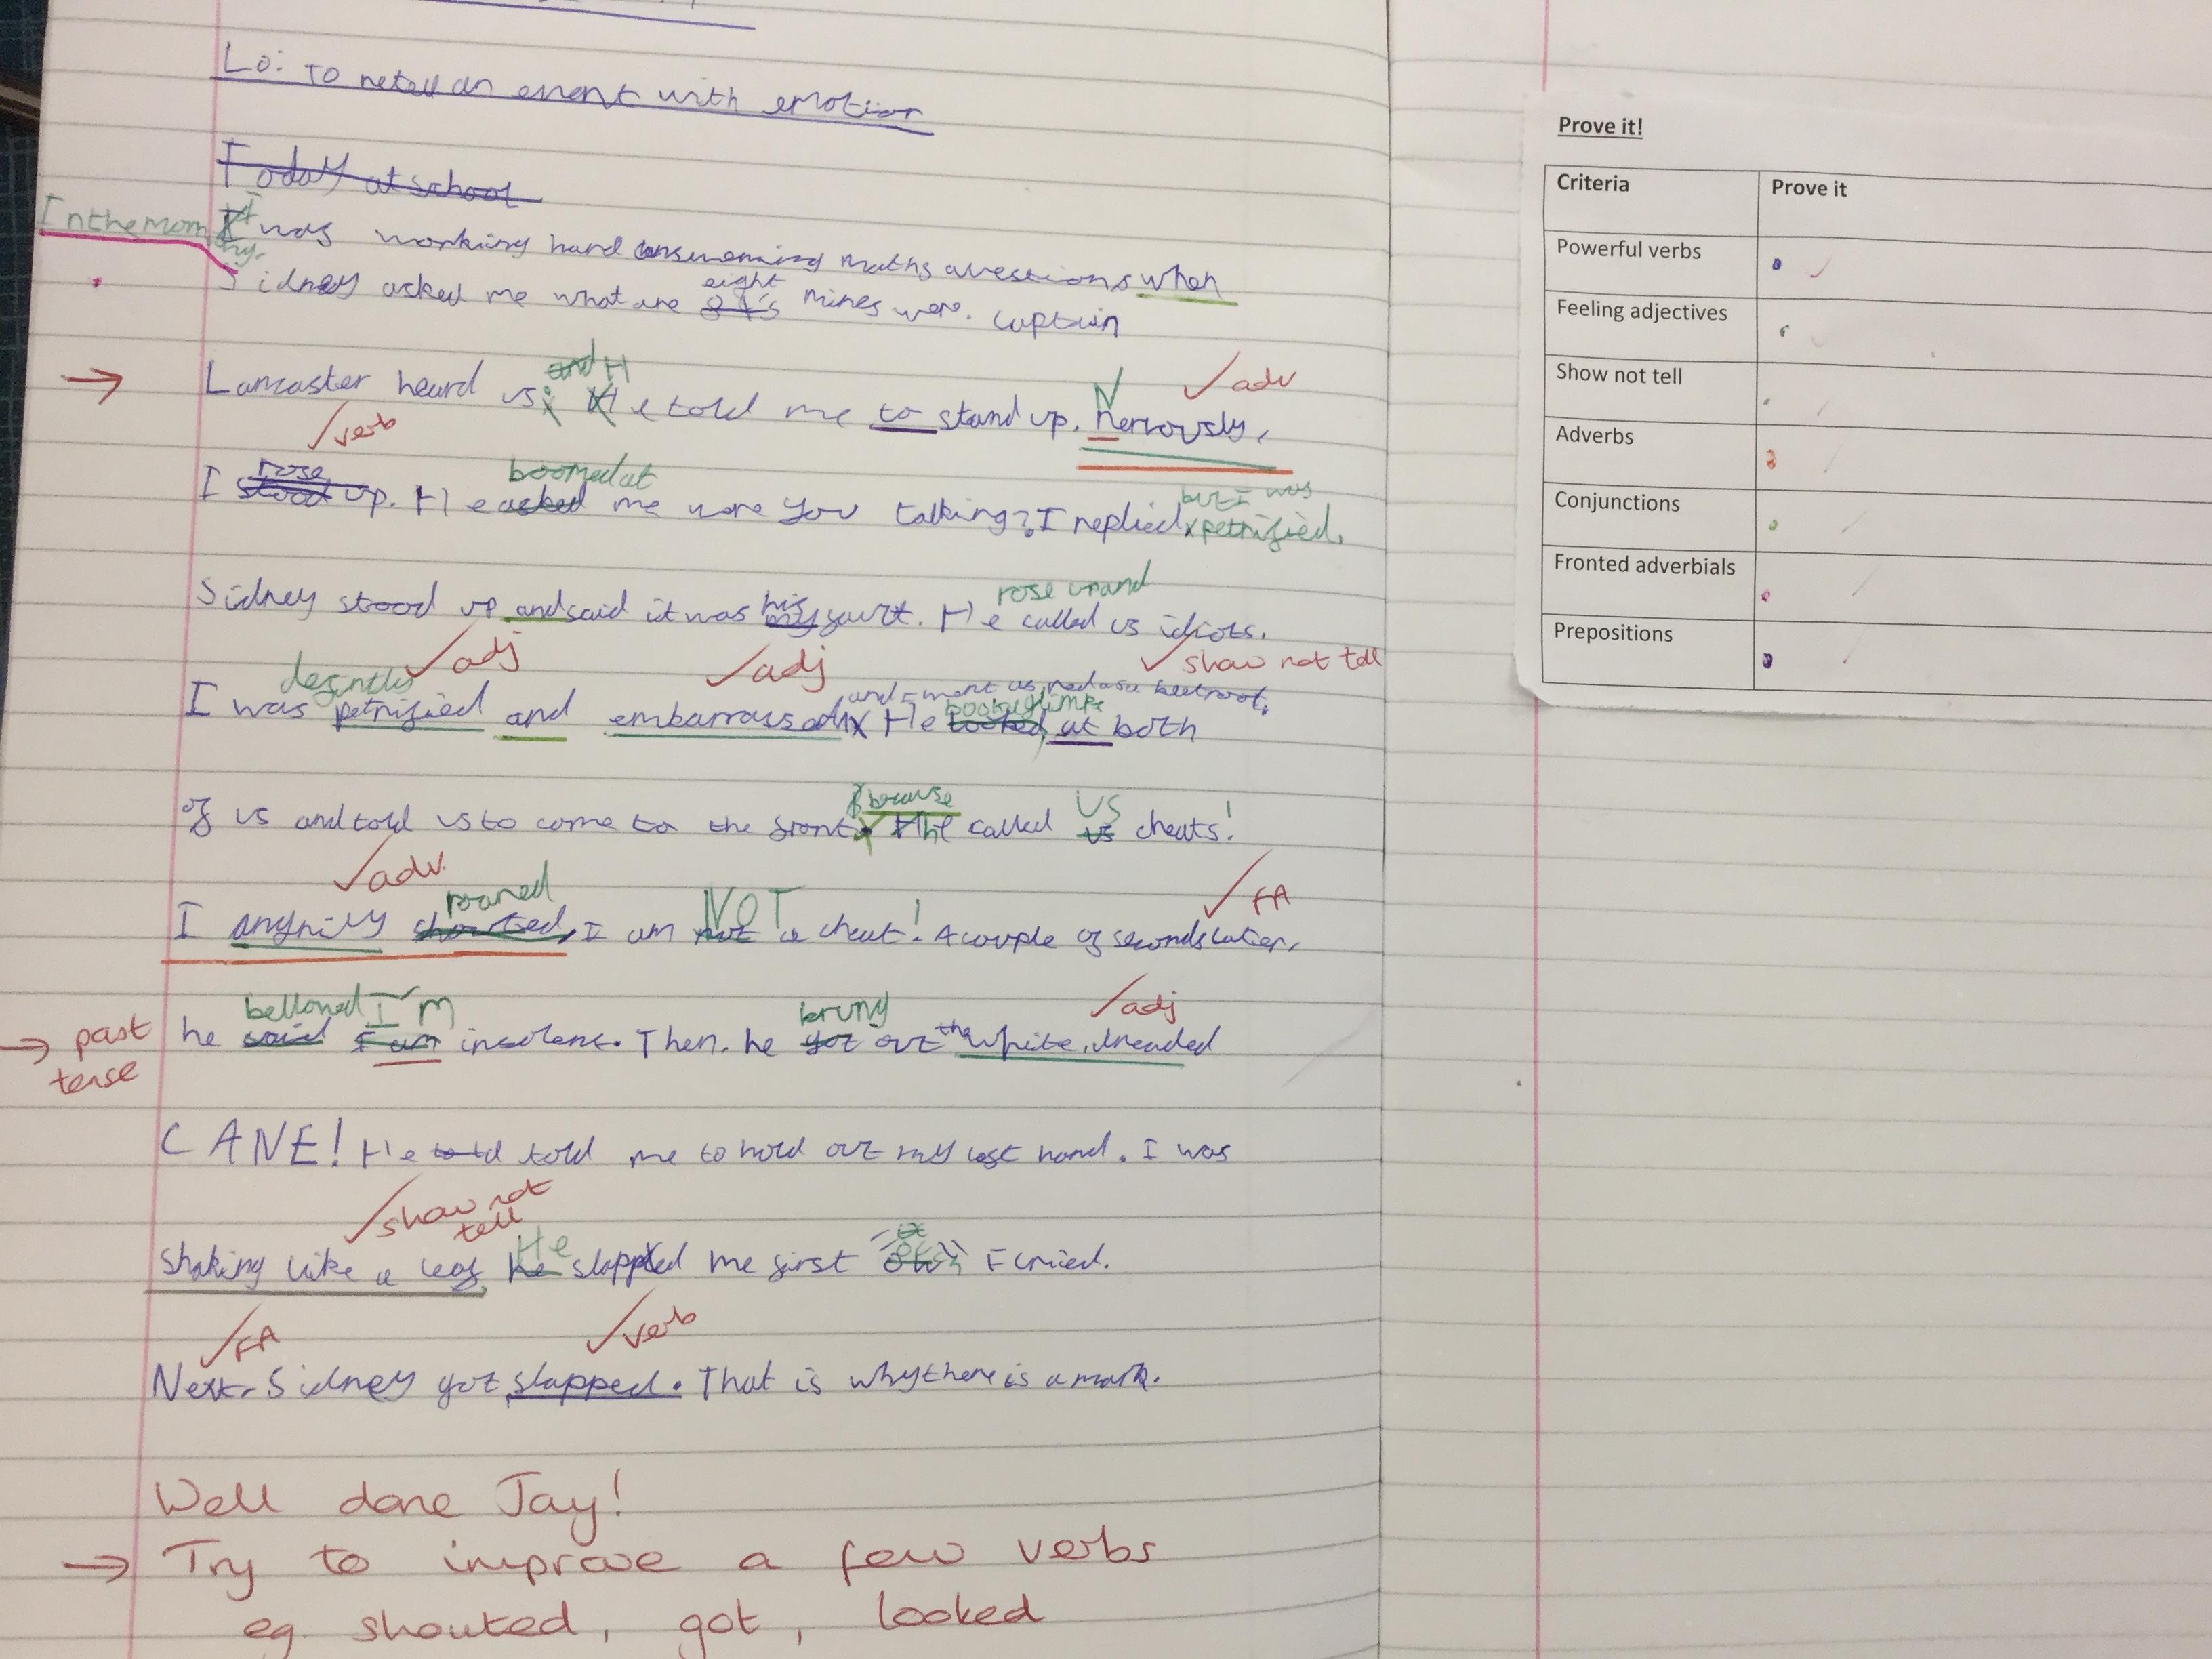 Lo: To retell an event with emotion
Today at school
In the morning,
I was working hard answering maths questions when
eight
Sidney asked me what are 8 9's mines were. Captain
and H
N ✓ adv
→ Lancaster heard us. He told me to stand up. nervously,
✓ verb
rose boomed at but I was
I stood up. He asked me were you talking? I replied petrified.
his rose up and
Sidney stood up and said it was my fault. He called us idiots.
✓ adj ✓ adj ✓ show not tell
and I went as red as a beetroot.
I was petrified and embarrassed. He looked at both
because US
of us and told us to come to the front. He called us cheats!
✓ adv. ✓ FA
roared NOT !
I angrily shouted, I am not a cheat! A couple of seconds later,
bellowed I'm brung ✓ adj
→ past tense
he said I am insolent. Then, he got out the white, dreaded
CANE! He told told me to hold out my left hand. I was
✓ show not tell
He
shaking like a leaf, he slapped me first I cried.
✓ FA ✓ verb
Next, Sidney got slapped. That is why there is a mark.
Well done Jay!
→ Try to improve a few verbs
eg. shouted, got, looked
Prove it!
Criteria Prove it
Powerful verbs
Feeling adjectives
Show not tell
Adverbs
Conjunctions
Fronted adverbials
Prepositions